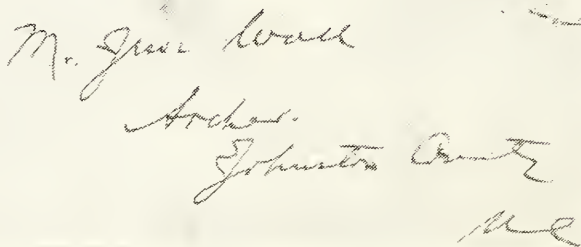 Mr. Jesse Worall
Archer.
Johnston County
N C